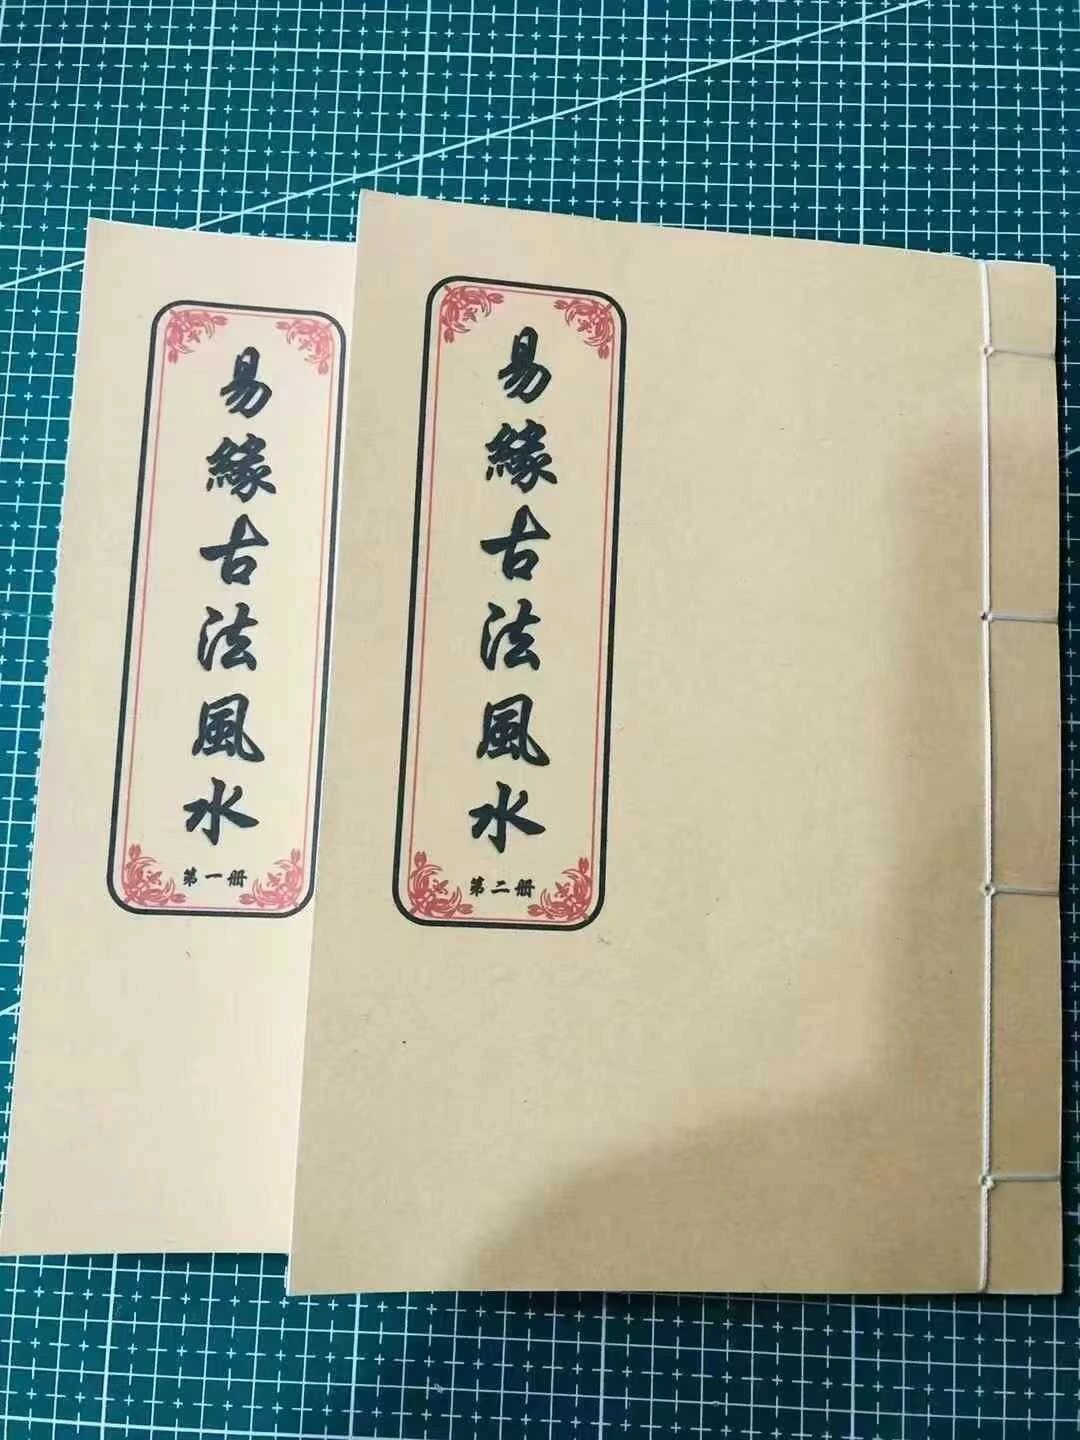 易緣古法風水
第一册
易緣古法風水
第二册